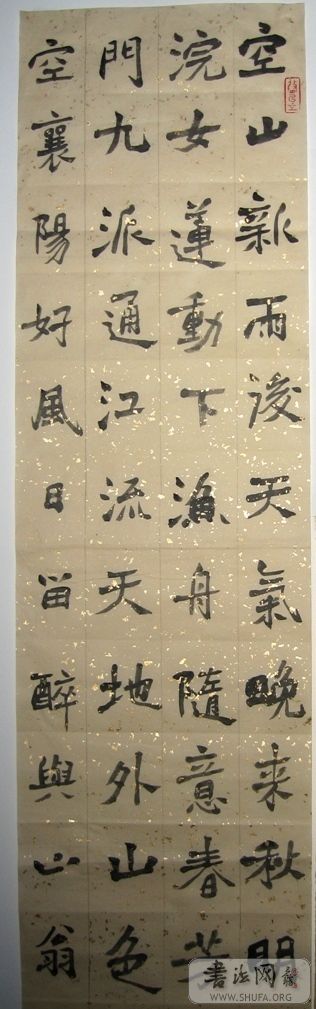 空山新雨後天氣晚来秋明
浣女蓮動下漁舟隨意春芳
門九派通江流天地外山色
空襄陽好風日留醉與山翁
書法网
WWW.SHUFA.ORG